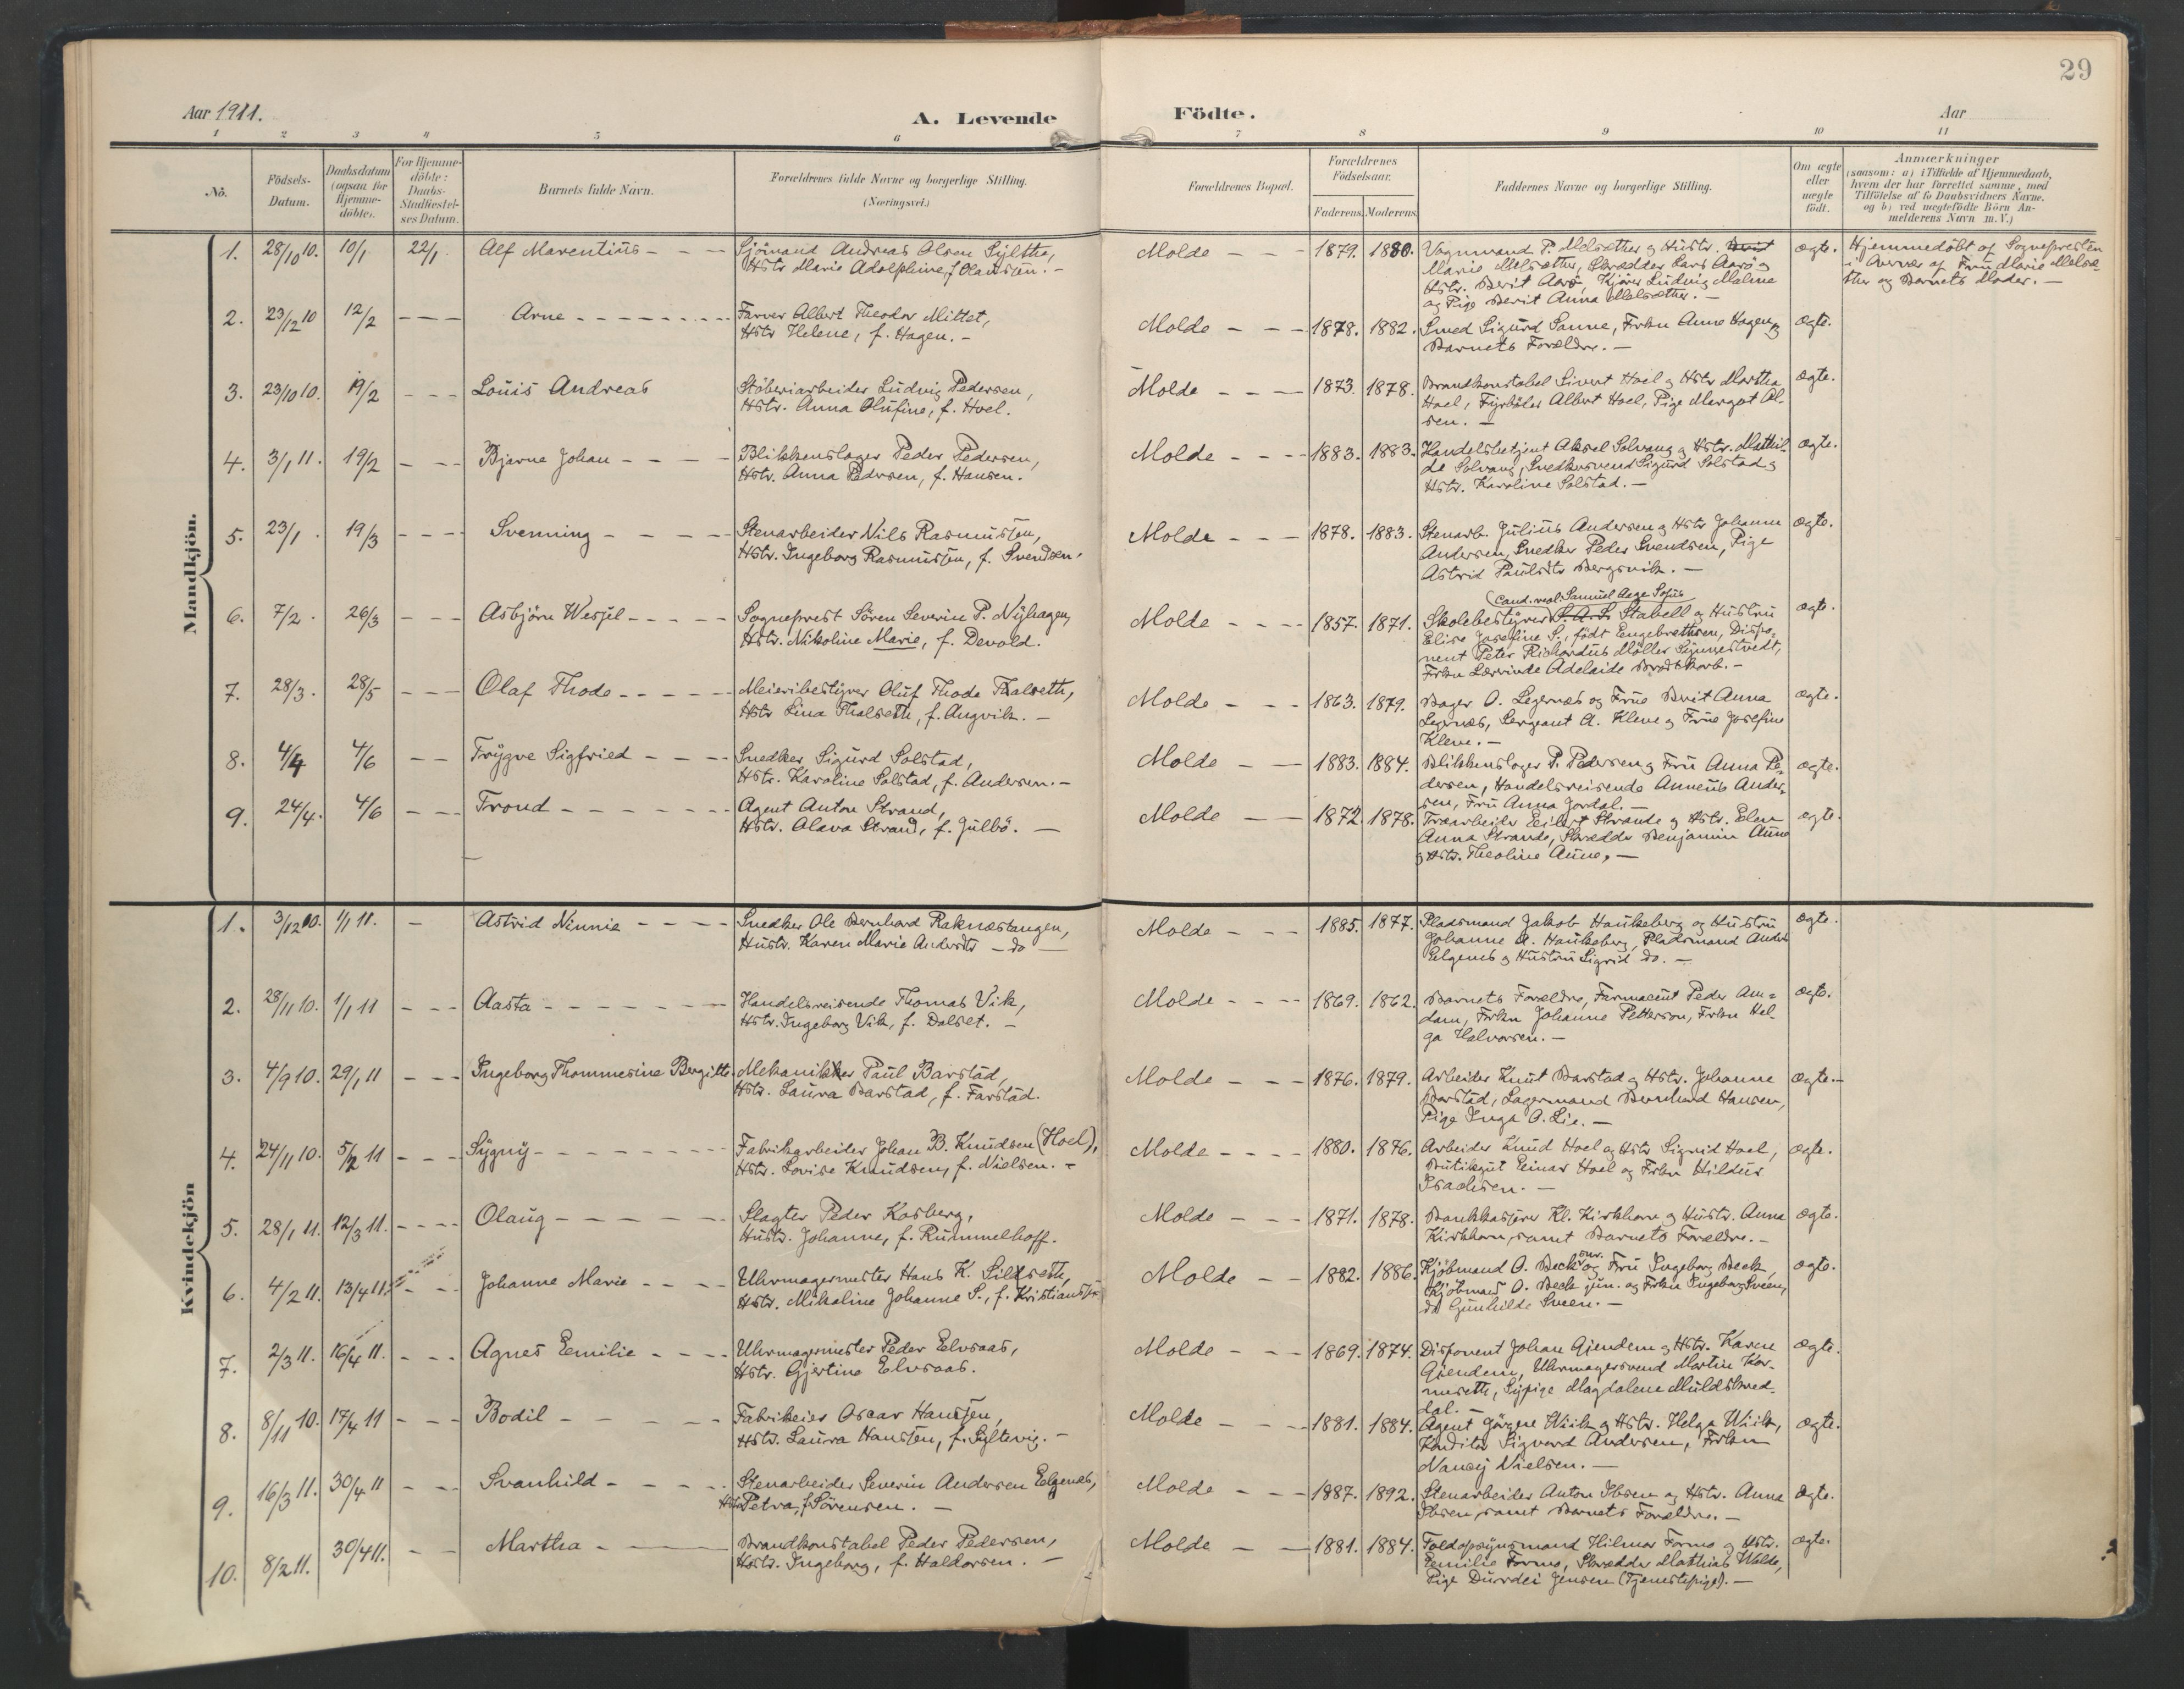 29
Aar 1911.
A. Levende
Födte.
Aar
1 2 3 4 5 6 7 8 9 10 11
No.
Födsels-
Datum.
Daabsdatum
(ogsaa for
Hjemme-
döbte).
For Hjemme-
döbte:
Daabs-
Stadfæstel-
ses Datum.
Barnets fulde Navn.
Forældrenes fulde Navne og borgerlige Stilling.
(Næringsvei.)
Forældrenes Bopæl.
Forældrenes
Födselsaar.
Faderens. Moderens.
Faddernes Navne og borgerlige Stilling.
Om ægte
eller
uægte
födt.
Anmærkninger
(saasom: a) i Tilfælde af Hjemmedaab,
hvem der har forrettet samme, med
Tilföielse af to Daabsvidners Navne.
og b) ved uægtefödte Börn An-
melderens Navn m. V.)
Mandkjön.
1. 28/10 10. 10/1 22/1 Alf Marentius - - -
Sjömand Andreas Olsen Sylthe,
Hstr Marie Adolphine, f Olaussen. -
Molde - - 1879. 1880.
Vognmand P. Melsæther og Hustr. Berit
Marie Melsæther, Skrædder Lars Aarö og
Hstr. Berit Aarö, Kjører Ludvig Malme
og Pige Berit Anna Melsæther. -
ægte.
Hjemmedöbt af Sognepresten
i Overvær af Fru Marie Melsæ-
ther og Barnets Moder. -
2. 23/12 10 12/2 - - - Arne - - - - - -
Farver Albert Theodor Mittet,
Hstr Helene, f. Hagen. -
Molde - - - 1878. 1882.
Smed Sigurd Sanne, Frkn Anne Hagen og
Barnets Forældre. -
ægte.
3. 23/10 10. 19/2 - - - Louis Andreas
Stöberiarbeider Ludvig Pedersen,
Hstr. Anna Olufine, f. Hoel.
Molde - - - 1873. 1878.
Brandkonstabel Sivert Hoel og Hstr Martha
Hoel, Fyrböter Albert Hoel, Pige Margot Ol-
sen. -
ægte.
4. 3/1 11. 19/2 - - - Bjarne Johan - - -
Blikkenslager Peder Pedersen,
Hstr. Anna Pedersen, f. Hansen.
Molde - - - 1883. 1883.
Handelsbetjent Aksel Solvang og Hstr. Mathil-
de Solvang, Snedkersvend Sigurd Solstad og
Hstr. Karoline Solstad. -
ægte.
5. 23/1 . 19/3 - - - Svenning - - - -
Stenarbeider Nils Rasmussen,
Hstr. Ingeborg Rasmussen, f. Svendsen.
Molde - - - 1878. 1883.
Stenarb. Julius Andersen og Hstr Johanne
Andersen, Snedker Peder Svendsen, Pige
Astrid Paulsdtr Bergsvik. -
ægte.
6. 7/2 . 26/3 - - - Asbjörn Wessel - - - -
Sogneprest Sören Severin P. Nyhagen,
Hstr. Nikoline Marie, f. Devold.
Molde - - - 1857. 1871.
(Cand. real. Samuel Aage Sofus
Skolebestyrer S. A. S. Stabell og Hustru
Elise Josefine S., födt Engebrethsen, Dispo-
nent Peter Richardus Möller Sinnestvedt,
Frkn Lærerinde Adelaide
ægte.
7. 28/3. 28/5 - - - Olaf Thode - - - - -
Meieribestyrer Oluf Thode Thalseth,
Hstr Lina Thalseth, f. Angvik. -
Molde - - - 1863. 1879.
Bager O. Legernæs og Frue Berit Anna
Legernæs, Sergeant A. Kleve og Frue Josefine
Kleve. -
ægte.
8. 4/4 4/6 - - Trygve Sigfried - - -
Snedker Sigurd Solstad,
Hstr. Karoline Solstad, f. Andersen. -
Molde - - 1883. 1884.
Blikkenslager P. Pedersen og Fru Anna Pe-
dersen, Handelsreisende Anneus Ander-
sen, Fru Anna Jordal. -
ægte.
9. 24/4. 4/6 - - Trond - - - - - -
Agent Anton Strand,
Hstr. Olava Strand, f. Julbö. -
Molde - - 1872. 1878.
Træarbeider Eilert Strande og Hstr. Elen
Anna Strande, Skrædder Benjamin Aune
og Hstr. Theoline Aune. -
ægte.
Kvindekjön
1. 3/12 10. 1/1 11. - Astrid Ninnie - - - -
Snedker Ole Bernhard Raknæstangen,
Hustr. Karen Marie Andersdtr - do -
Molde - - - 1885. 1877.
Pladsmand Jakob Haukeberg og Hustru
Johanne A. Haukeberg, Pladsmand Anders
Eelgenes og Hustru Sigrid do. -
ægte.
2. 28/11 10. 1/1 11 - - - Aasta - - - - - -
Handelsreisende Thomas Vik,
Hstr. Ingeborg Vik, f. Dalset. -
Molde - - - 1869. 1862.
Barnets Forældre, Farmaceut Peder Am-
dam, Frkn Johanne Petterson, Frkn Hel-
ga Halvorsen. -
ægte.
3. 4/9 10. 29/1 11 - - - Ingeborg Thommesine Bergitte.
Mekaniker Paul Barstad,
Hstr. Laura Barstad, f. Farstad.
Molde - - - 1876. 1879.
Arbeider Knut Barstad og Hstr. Johanne
Barstad, Lagermand Bernhard Hansen,
Pige Inga O. Lie. -
ægte.
4. 24/11 10. 5/2 11 - - - Sygny - - - - - -
Fabrikarbeider Johan B. Knudsen (Hoel),
Hstr. Lovise Knudsen, f. Nielsen. -
Molde - - - - 1880. 1876.
Arbeider Knud Hoel og Hstr Sigrid Hoel,
Butikgut Einar Hoel og Frkn Hildur
Isachsen. -
ægte.
5. 28/1 11. 12/3 11. - - - - Olaug - - - - -
Slagter Peder Kosberg,
Hustr. Johanne, f. Rummelhoff.
Molde - - - 1871. 1878.
Bankkasjerer Kl. Kirkhorn og Hustr. Anna
Kirkhorn, samt Barnets Forældre. -
ægte.
6. 4/2 11. 13/4 11. - - Johanne Marie - - - -
Uhrmagermester Hans K. Silseth,
Hstr. Mikaline Johanne S., f. Kristiansen
Molde - - 1882. 1886.
Kjöbmand O. Beck senr. og Fru Ingeborg Beck,
Kjöbmand O. Beck jun. og Frkn Ingeborg Sveen,
do Gunhilde Sveen. -
ægte.
7. 2/3 11. 16/4 11. - - - Agnes Emilie - - - -
Uhrmagermester Peder Elvsaas,
Hstr. Gjertine Elvsaas.
Molde - - - 1869. 1874.
Disponent Johan Gjendem og Hstr. Karen
Gjendem, Uhrmagersvend Martin Kor-
nuseth, Sypige Magdalene Muldskred-
dal. -
ægte.
8. 8/11 10. 17/4 11 - - - Bodil - - - - -
Fabrikeier Oscar Hanssen,
Hstr. Laura Hanssen, f. Syltevig. -
Molde - - - 1881. 1884.
Agent Görgen Wiik og Hstr. Helga Wiik,
Konditor Sigvard Andersen, Frkn
Nancy Nielsen. -
ægte.
9. 16/3 11. 30/4 11 - - Svanhild - - - -
Stenarbeider Severin Andersen Eelgenes,
Hstr. Petra, f. Sörensen. -
Molde - - - 1887. 1892.
Stenarbeider Anton Ibsen og Hstr. Anna
Ibsen, samt Barnets Forældre. -
ægte.
10. 8/2 11. 30/4 11. - - Martha - -
Brandkonstabel Peder Pedersen,
Hstr. Ingeborg, f. Haldorsen. -
Molde - - 1881. 1884.
Toldopsynsmand Hilmar Formo og Hstr.
Emilie Formo, Skrædder Mathias Wolde,
Pige Durdei Jensen (Tjenestepige). -
ægte.